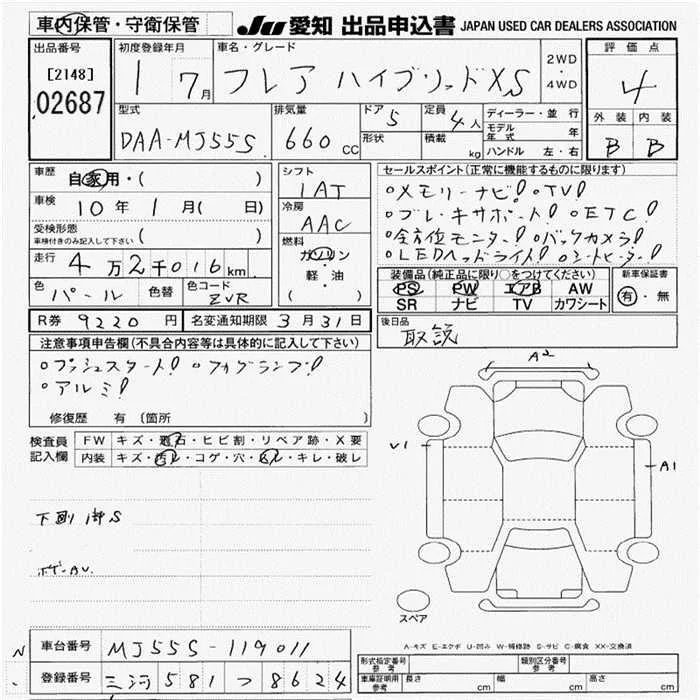 車内保管・守衛保管
JU 愛知 出品申込書 JAPAN USED CAR DEALERS ASSOCIATION
出品番号
[2148]
02687
初度登録年月
1 7月
車名・グレード
フレア ハイブリッドXS
2WD
・
4WD
評価点
4
外装 内装
B B
型式
DAA-MJ55S
排気量
660 CC
ドア 5
形状
定員 4人
積載 kg
ディーラー・並行
モデル年式 年
ハンドル 左・右
車歴
自家用・( )
車検
10年 1月( 日)
受検形態
車検付きのみ記入して下さい ( )
走行
4万2千016km
色
パール
色替
色コード
ZVR
シフト
1AT
冷房
AAC
燃料
ガソリン
軽・油
( )
セールスポイント(正常に機能するものに限ります)
○メモリーナビ! ○TV!
○ブレーキサポート! ○ETC!
○全方位モニター! ○バックカメラ!
○LEDヘッドライト! ○シートヒーター!
装備品(純正品に限り○をつけてください)
PS PW エアB AW
SR ナビ TV カワシート
新車保証書
有・無
R券 9220円
名変通知期限 3月31日
後日品
取説
注意事項申告欄(不具合内容等は具体的に記入して下さい)
○プッシュスタート! ○フォグランプ!
○アルミ!
修復歴 有(箇所 )
検査員
記入欄
FW キズ・飛石・ヒビ割・リペア跡・X要
内装 キズ・汚レ・コゲ・穴・スレ・キレ・破レ
A2
V1
A1
スペア
A-キズ E-エクボ U-凹み W-補修跡 S-サビ C-腐食 XX-交換済
車台番号 MJ55S-119011
登録番号 三河 581 つ 8624
型式指定番号
参考
類別区分番号
参考
車庫証明用
参考
長さ cm 幅 cm 高さ cm